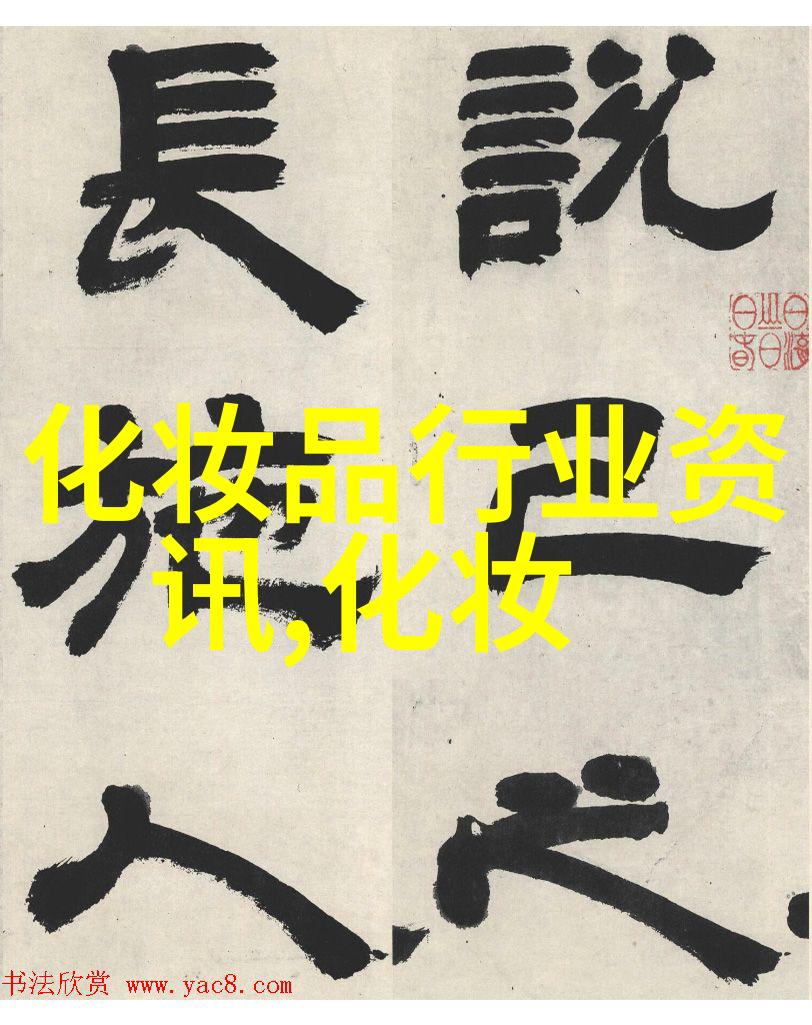 說己之
長施人
化妆品行业资
讯,化妆
书法欣赏 www.yac8.com